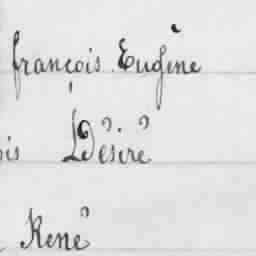 françois Eugène
ois Désiré
René